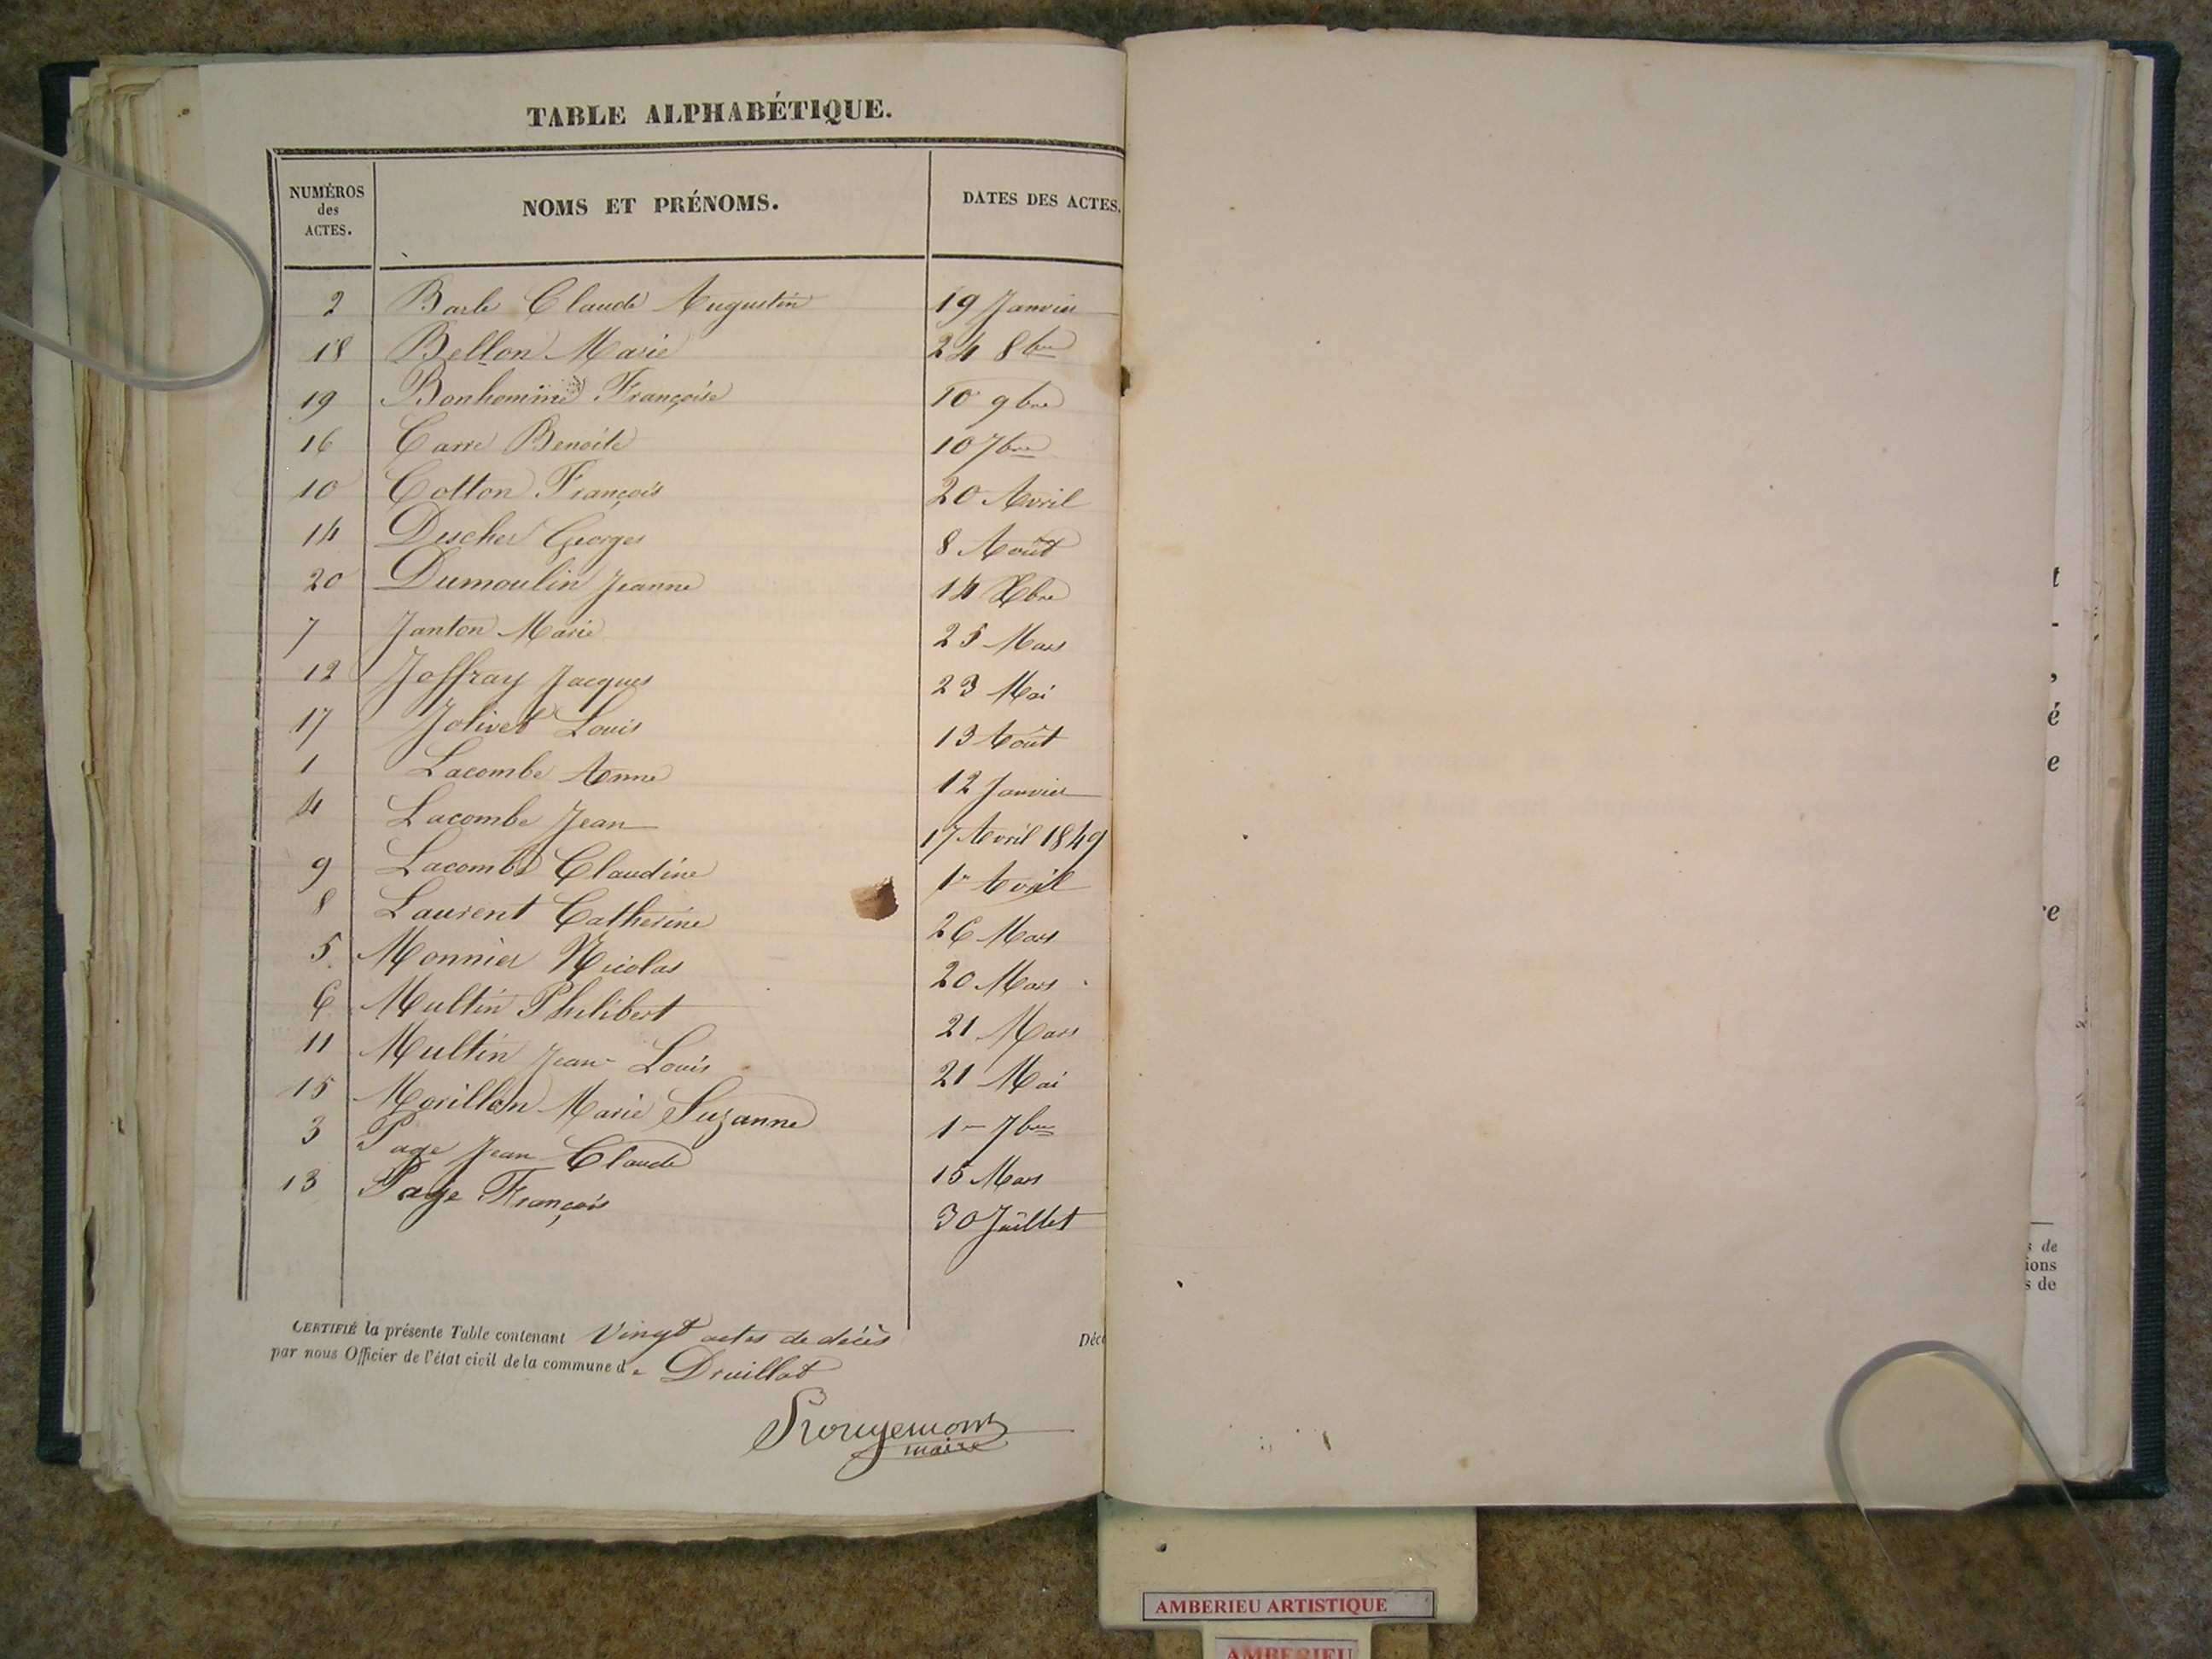 TABLE ALPHABÉTIQUE.
NUMÉROS des ACTES. NOMS ET PRÉNOMS. DATES DES ACTES.
2 Barbe Claude Augustin 19 Janvier
18 Bellon Marie 24 8bre
19 Bonhomme Françoise 10 9bre
16 Carre Benoite 10 7bre
10 Cotton François 20 Avril
14 Descher Georges 8 Août
20 Dumoulin Jeanne 14 Xbre
7 Janton Marie 25 Mars
12 Joffray Jacques 23 Mai
17 Jolivet Louis 13 Août
1 Lacombe Anne 12 Janvier
4 Lacombe Jean 17 Avril 1849
9 Lacombe Claudine 1er Avril
8 Laurent Catherine 26 Mars
5. Monnier Nicolas 20 Mars
6 Multin Philibert 21 Mars
11 Multin Jean Louis 21 Mai
15 Morillon Marie Suzanne 1er 7bre
3 Page Jean Claude 15 Mars
13 Page François 30 Juillet
CERTIFIÉ la présente Table contenant Vingt actes de décès
par nous Officier de l'état civil de la commune de Druillat
Déc
Rougemont
maire
t
-
,
é
e
e
s de
ions
s de
AMBERIEU ARTISTIQUE
AMBERIEU